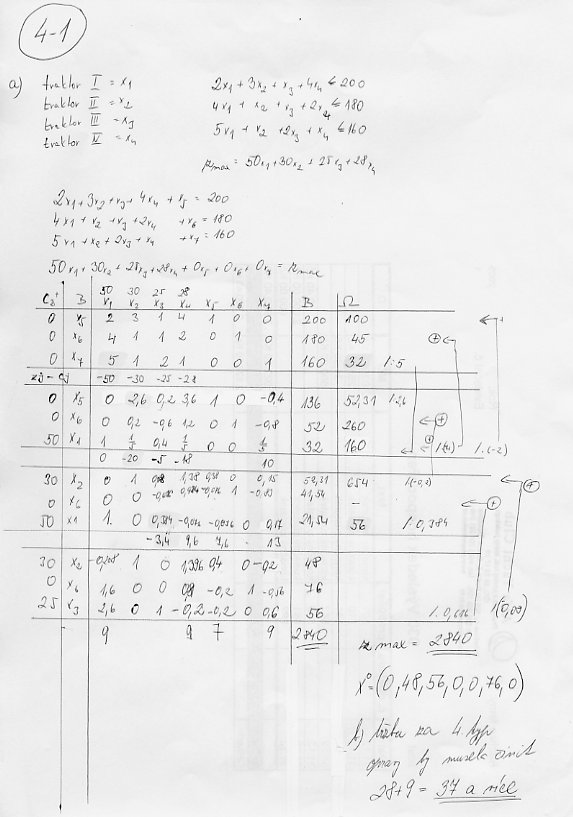 4-1
a) traktor I = x1
traktor II = x2
traktor III = x3
traktor IV = x4
2x1 + 3x2 + x3 + 4x4 ≤ 200
4x1 + x2 + x3 + 2x4 ≤ 180
5x1 + x2 + 2x3 + x4 ≤ 160
zmax = 50x1 + 30x2 + 25x3 + 28x4
2x1 + 3x2 + x3 + 4x4 + x5 = 200
4x1 + x2 + x3 + 2x4 + x6 = 180
5x1 + x2 + 2x3 + x4 + x7 = 160
50x1 + 30x2 + 25x3 + 28x4 + 0x5 + 0x6 + 0x7 = zmax
50 30 25 28
B x1 x2 x3 x4 x5 x6 B Ω
0 x5 2 3 1 4 1 0 0 200 100
0 x6 4 1 1 2 0 1 0 180 45
0 x7 5 1 2 1 0 0 1 160 32 /:5
zj - cj -50 -30 -25 -28
0 x5 0 2,6 0,2 3,6 1 0 -0,4 136 52,31 /:2,6
0 x6 0 0,2 -0,6 1,2 0 1 -0,8 52 260
50 x1 1 1/5 0,4 1/5 0 0 1/5 32 160 /(-4) /·(-2)
0 -20 -5 -18 10
30 x2 0 1 1,38 0,38 0 0,15 52,31 654 /(-0,2)
0 x6 0 0 1 41,54 -
50 x1 1 0 0,384 -0,076 -0,076 0 0,17 21,54 56 /:0,384
-3,4 9,6 7,6 - 13
30 x2 -0,208 1 0 1,396 0,4 0 -0,2 48
0 x6 1,6 0 0 -0,2 1 -0,56 76
25 x3 2,6 0 1 -0,2 -0,2 0 0,6 56 /:0,616 /(0,08)
9 9 7 9 2840
z max = 2840
x° = (0,48,56,0,0,76,0)
b) tržba za 4. typ
opravy by musela činit
28+9 = 37 a více